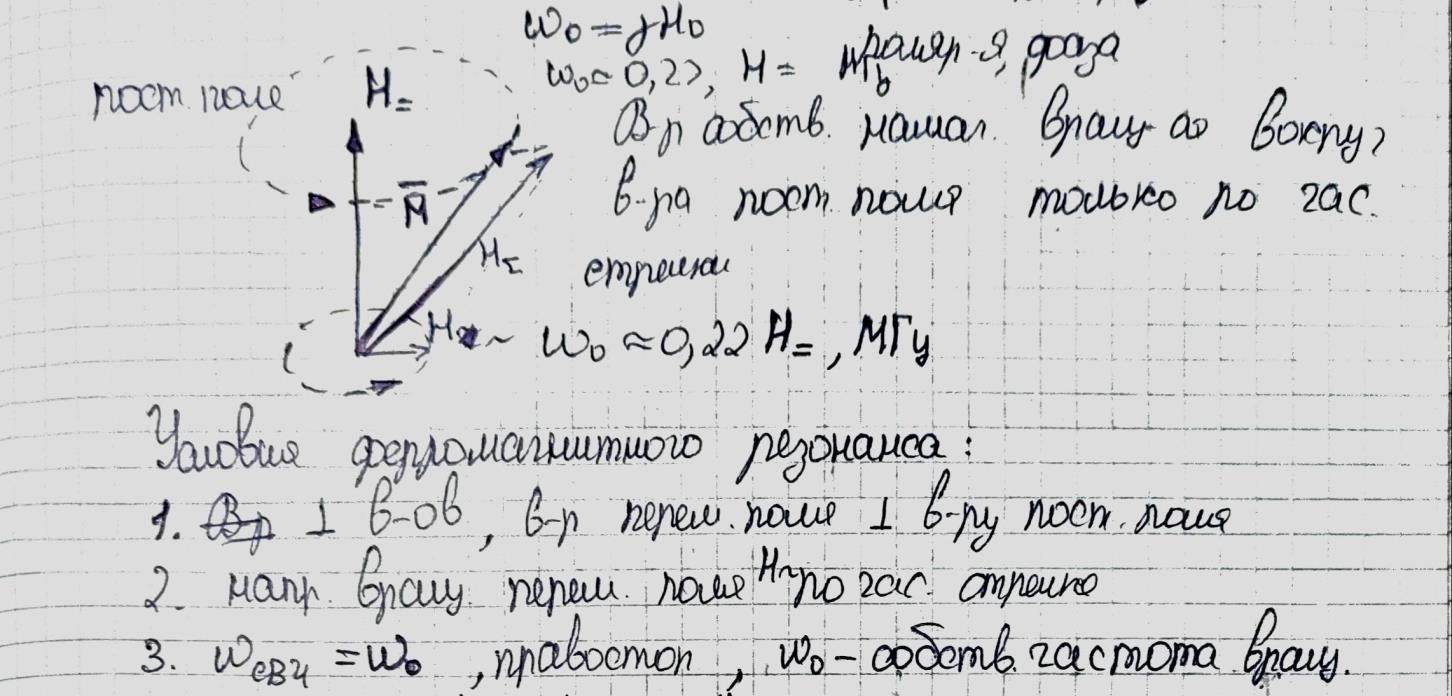 ω₀ = γH₀
ω₀ = 0,22, H = поляр-я, фаза
пост. поле H₌
В-р собств. намаг. вращ-ся вокруг
M̅
в-ра пост. поля только по час.
HΣ
стрелки
H~
ω₀ ≈ 0,22 H₌, МГц
Условия ферромагнитного резонанса:
1. ⊥ в-ов, в-р перем. поля ⊥ в-ру пост. поля
2. напр. вращ. перем. поля H~ по час. стрелке
3. ωСВЧ = ω₀, правостор, ω₀ – собств. частота вращ.